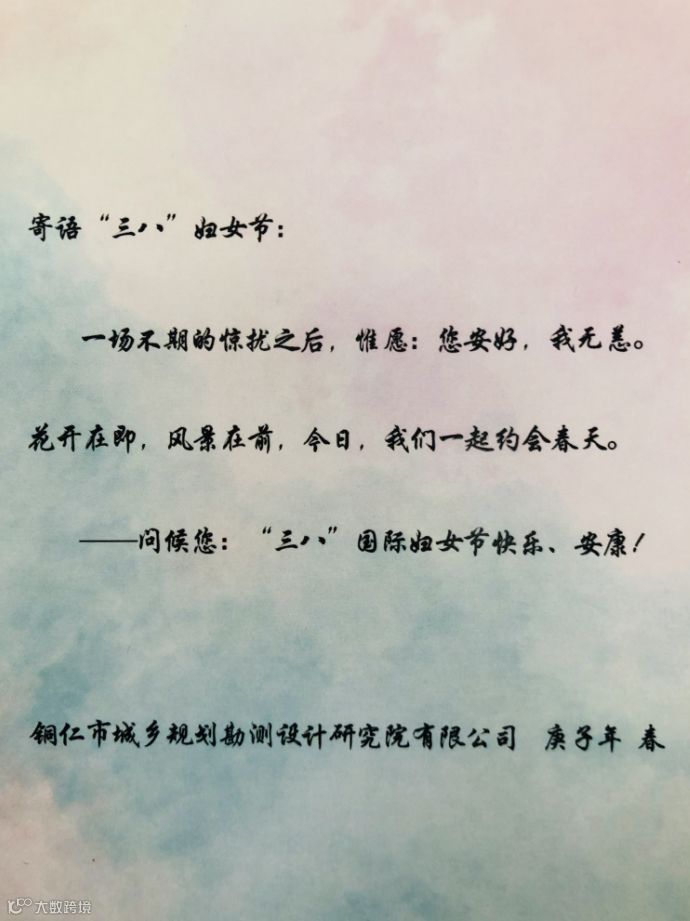 寄语“三八”妇女节：
一场不期的惊扰之后，惟愿：您安好，我无恙。
花开在即，风景在前，今日，我们一起约会春天。
——问候您：“三八”国际妇女节快乐、安康！
铜仁市城乡规划勘测设计研究院有限公司 庚子年 春
大数跨境